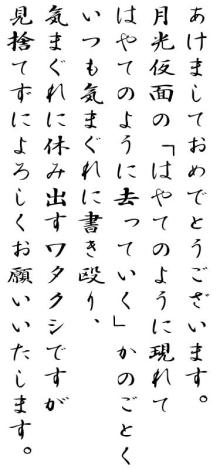 あけましておめでとうございます。
月光仮面の「はやてのように現れて
はやてのように去っていく」かのごとく
いつも気まぐれに書き殴り、
気まぐれに休み出すワタクシですが
見捨てずによろしくお願いいたします。